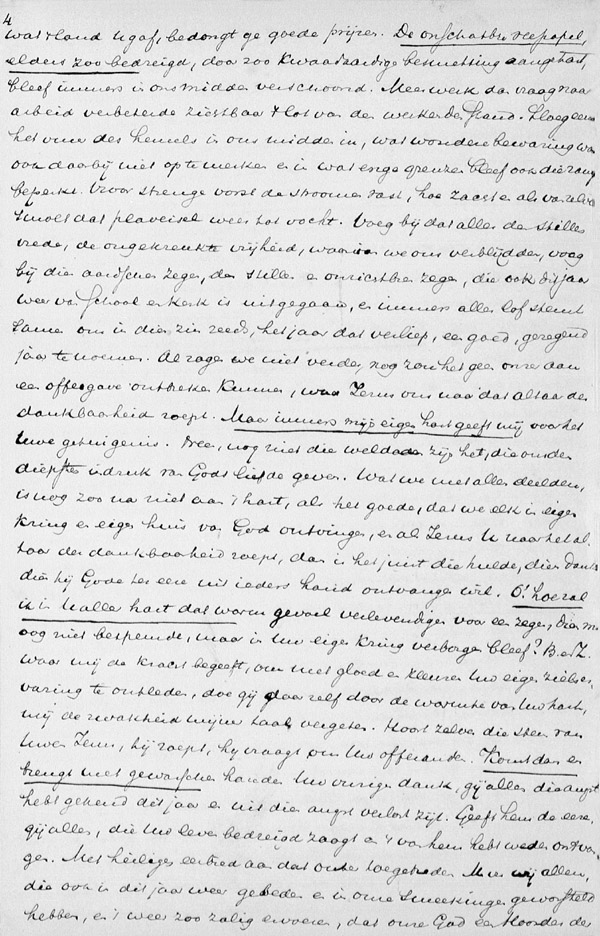 4
wat 't land U gaf, bedongt ge goede prijzen. De onschatbre veestapel,
elders zoo bedreigd, door zoo kwaadaardige besmetting aangetast,
bleef immers in ons midden verschoond. Meer werk dan vraag naar
arbeid verbeterde zichtbaar 't lot van den werkenden stand. Sloeg eens
het vuur des hemels in ons midden in, wat wondere bewaring was
ook daarbij niet op te merken en in wat enge grenzen bleef ook die ramp
beperkt. Vroor strenge vorst de stroomen vast, hoe zacht en als van zelven
smolt dat plaveisel weer tot vocht. Voeg bij dat alles den stillen
vrede, de ongekrenkte vrijheid, waarin we ons verblijdden, voeg
bij dien aardschen zegen, den stillen en onzichtbren zegen, die ook dit jaar
weer van School en Kerk is uitgegaan, en immers alles lof stemt
samen om in dien zin reeds, het jaar dat verliep, een goed, gezegend
jaar te noemen. Al zagen we niet verder, nog zou het geen onzer dan
een offergave ontbreken kunnen, waar Jezus ons naar dat altaar der
dankbaarheid roept. Maar immers mijn eigen hart geeft mij voor het
Uwe getuigenis. Neen, nog niet die weldaden zijn het, die ons den
diepsten indruk van Gods liefde geven. Wat we met allen deelden,
is nog zoo na niet aan 't hart, als het goede, dat we elk in eigen
kring en eigen huis van God ontvingen, en als Jezus U naar het al-
taar der dankbaarheid roept, dan is het juist die hulde, dien dank
dien hij Gode ter eere uit ieders hand ontvangen wil. O! hoe zal
ik in Uw aller hart dat warm gevoel verlevendigen voor een zegen, dien m'
oog niet bespeurde, maar in Uw eigen kring verborgen bleef? B. en Z.
waar mij de kracht begeeft, om met gloed en kleuren Uw eigen zielser-
varing te ontleden, doe gij daar zelf door de warmte van Uw hart,
mij de zwakheid mijner taal vergeten. Hoort zelve die stem van
Uwen Jezus, hij roept, hij vraagt om Uw offeranden. Komt dan en
brengt met gewasschen handen Uw vurigen dank, gij allen die angst
hebt gekend dit jaar en uit die angst verlost zijt. Geeft hem de eere,
gij allen, die Uw leven bedreigd zaagt en 't van hem hebt weder ontvan-
gen. Met heiligen eerbied aan dat outer toegetreden wij allen,
die ook in dit jaar weer gebeden en in onze smeekingen geworsteld
hebben, en 't weer zoo zalig ervoeren, dat onze God een Hoorder der